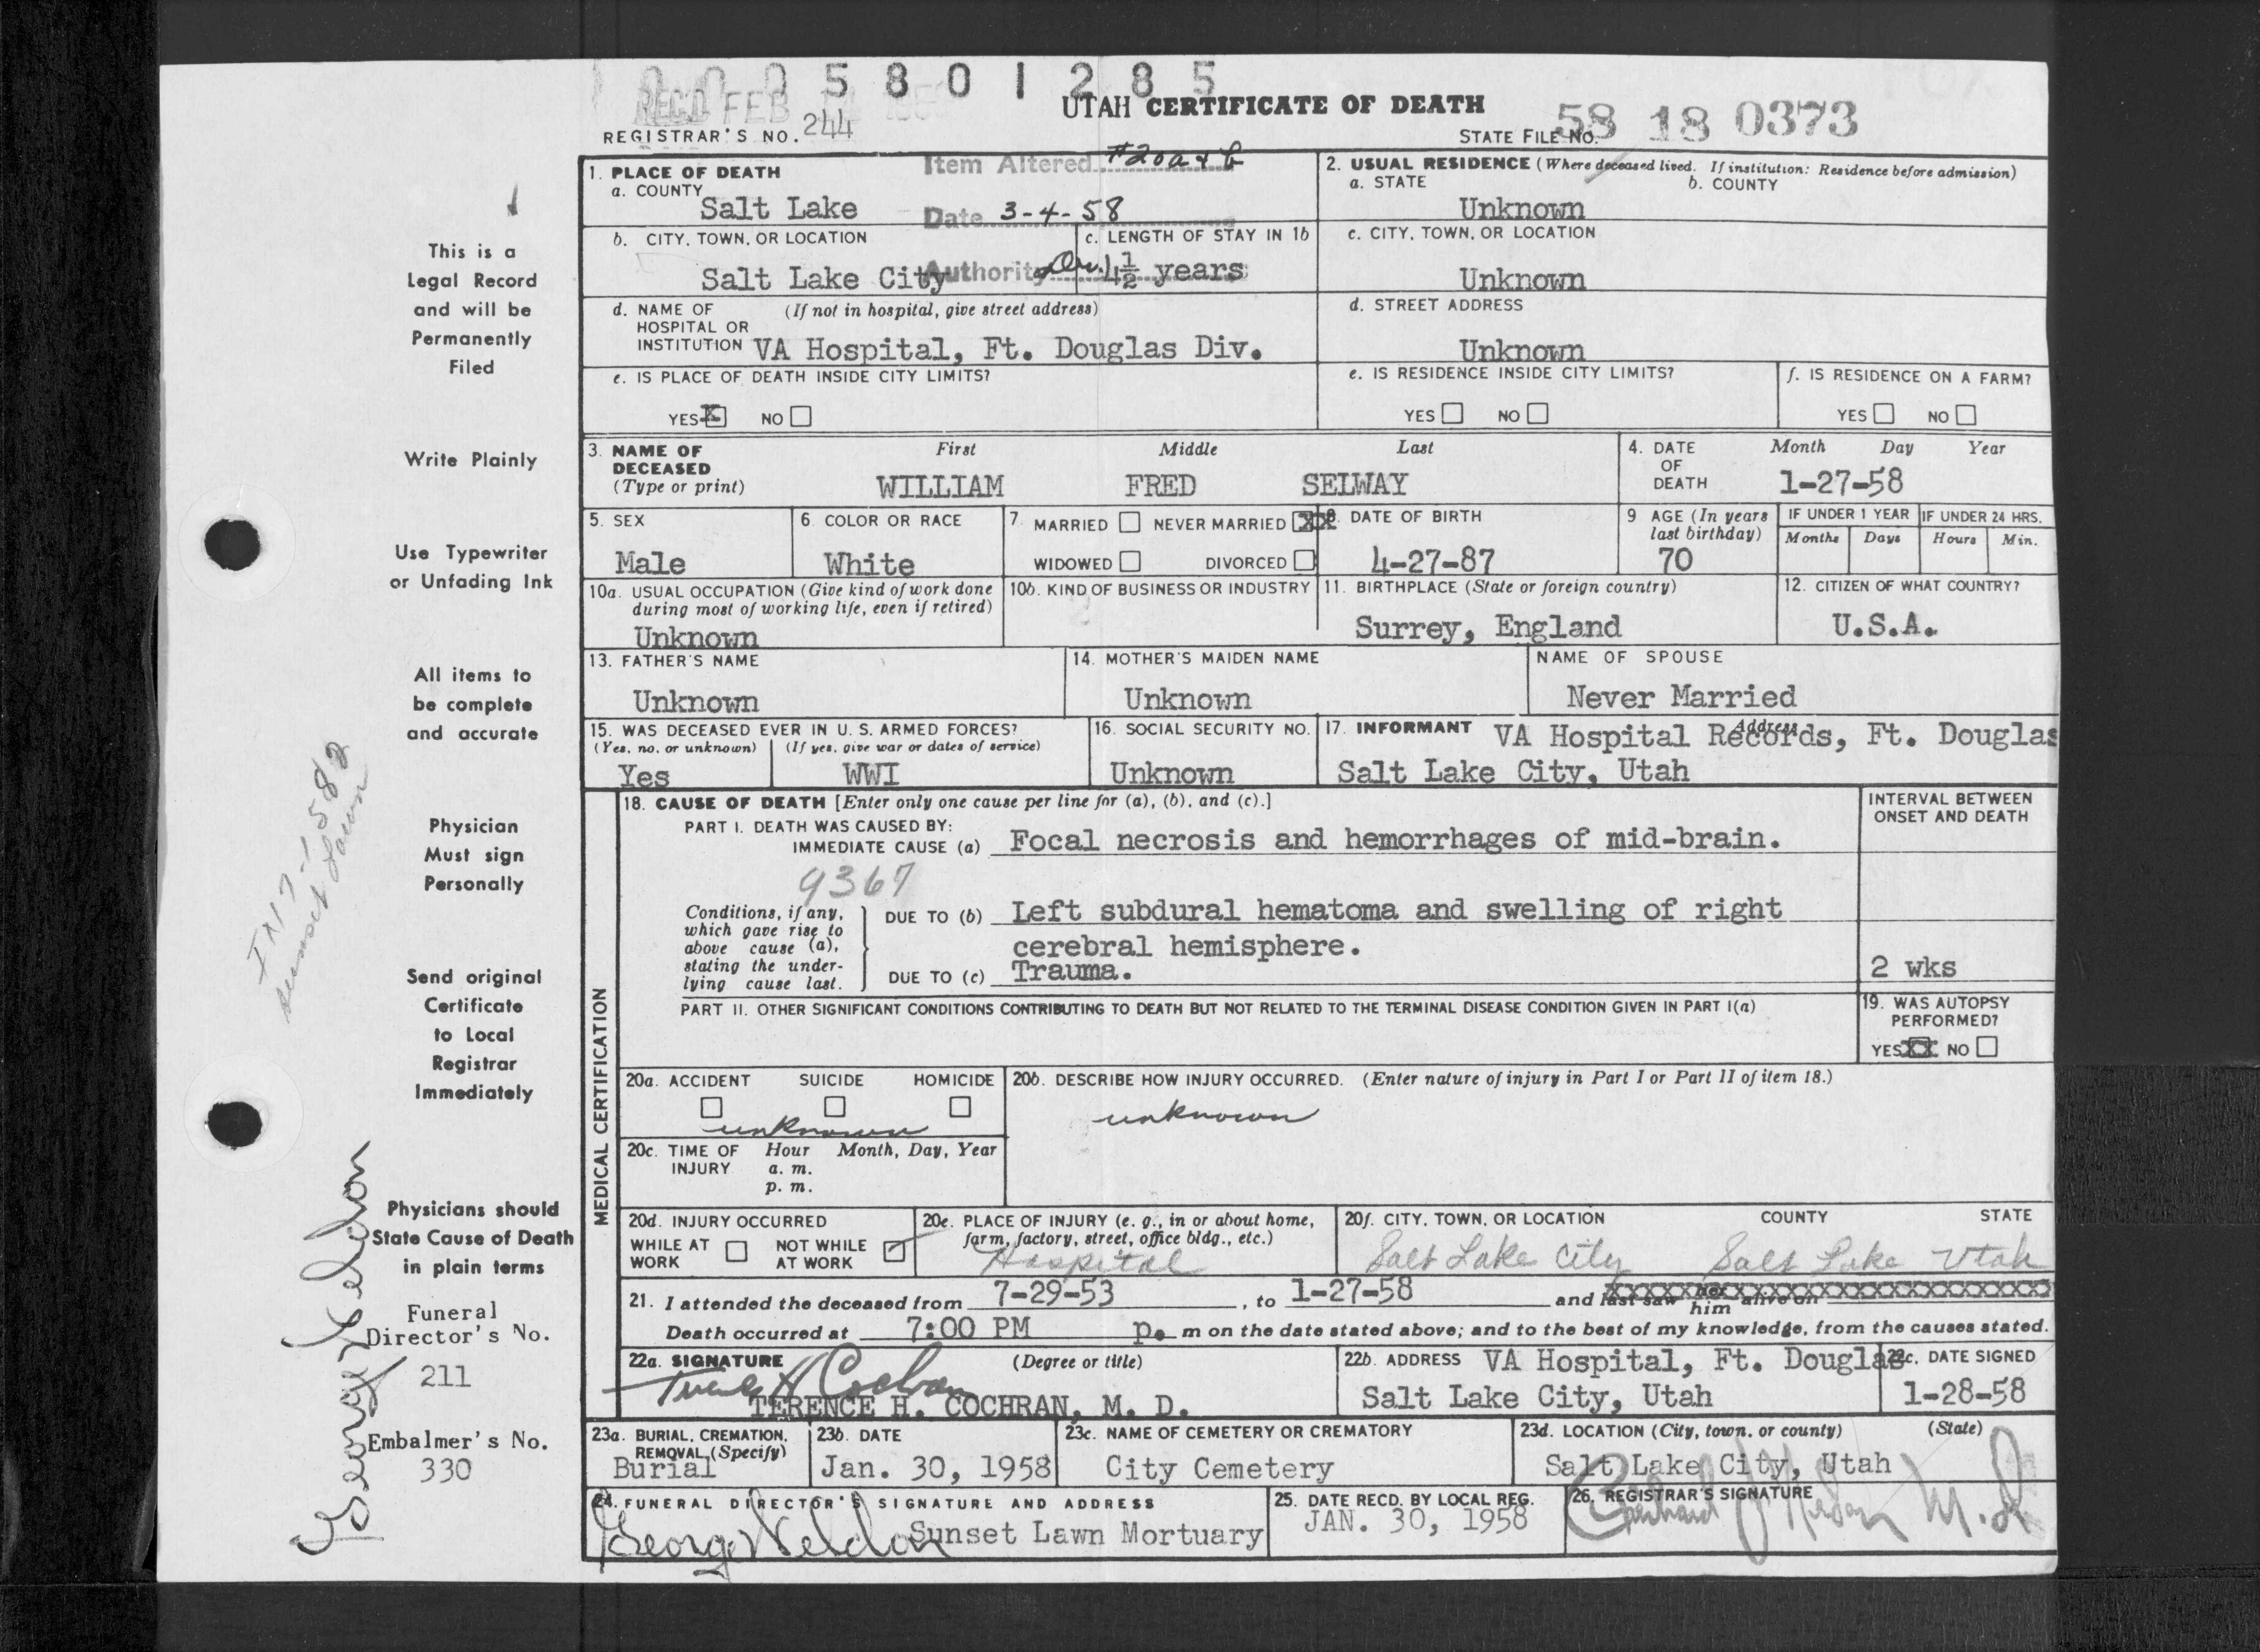 0 0 5 8 0 1 2 8 5
REC'D FEB
UTAH CERTIFICATE OF DEATH
REGISTRAR'S NO. 244
STATE FILE NO. 58 18 0373
Item Altered #20a & b
Date 3-4-58
Authority
1. PLACE OF DEATH
a. COUNTY
Salt Lake
2. USUAL RESIDENCE (Where deceased lived. If institution: Residence before admission)
a. STATE b. COUNTY
Unknown
b. CITY, TOWN, OR LOCATION
Salt Lake City
c. LENGTH OF STAY IN 1b
4½ years
c. CITY, TOWN, OR LOCATION
Unknown
d. NAME OF (If not in hospital, give street address)
HOSPITAL OR
INSTITUTION VA Hospital, Ft. Douglas Div.
d. STREET ADDRESS
Unknown
e. IS PLACE OF DEATH INSIDE CITY LIMITS?
YES X NO
e. IS RESIDENCE INSIDE CITY LIMITS?
YES NO
f. IS RESIDENCE ON A FARM?
YES NO
3. NAME OF First Middle Last
DECEASED
(Type or print) WILLIAM FRED SELWAY
4. DATE Month Day Year
OF
DEATH 1-27-58
5. SEX
Male
6. COLOR OR RACE
White
7. MARRIED NEVER MARRIED XX
WIDOWED DIVORCED
8. DATE OF BIRTH
4-27-87
9 AGE (In years
last birthday)
70
IF UNDER 1 YEAR IF UNDER 24 HRS.
Months Days Hours Min.
10a. USUAL OCCUPATION (Give kind of work done
during most of working life, even if retired)
Unknown
10b. KIND OF BUSINESS OR INDUSTRY
11. BIRTHPLACE (State or foreign country)
Surrey, England
12. CITIZEN OF WHAT COUNTRY?
U.S.A.
13. FATHER'S NAME
Unknown
14. MOTHER'S MAIDEN NAME
Unknown
NAME OF SPOUSE
Never Married
15. WAS DECEASED EVER IN U. S. ARMED FORCES?
(Yes, no, or unknown) (If yes, give war or dates of service)
Yes WWI
16. SOCIAL SECURITY NO.
Unknown
17. INFORMANT Address
VA Hospital Records, Ft. Douglas
Salt Lake City, Utah
MEDICAL CERTIFICATION
18. CAUSE OF DEATH [Enter only one cause per line for (a), (b), and (c).]
INTERVAL BETWEEN
ONSET AND DEATH
PART I. DEATH WAS CAUSED BY:
IMMEDIATE CAUSE (a) Focal necrosis and hemorrhages of mid-brain.
9367
Conditions, if any,
which gave rise to
above cause (a),
stating the under-
lying cause last.
DUE TO (b) Left subdural hematoma and swelling of right
cerebral hemisphere.
DUE TO (c) Trauma.
2 wks
PART II. OTHER SIGNIFICANT CONDITIONS CONTRIBUTING TO DEATH BUT NOT RELATED TO THE TERMINAL DISEASE CONDITION GIVEN IN PART I(a)
19. WAS AUTOPSY
PERFORMED?
YES XX NO
20a. ACCIDENT SUICIDE HOMICIDE
unknown
20b. DESCRIBE HOW INJURY OCCURRED. (Enter nature of injury in Part I or Part II of item 18.)
unknown
20c. TIME OF Hour Month, Day, Year
INJURY a. m.
p. m.
20d. INJURY OCCURRED
WHILE AT NOT WHILE
WORK AT WORK
20e. PLACE OF INJURY (e. g., in or about home,
farm, factory, street, office bldg., etc.)
Hospital
20f. CITY, TOWN, OR LOCATION COUNTY STATE
Salt Lake City Salt Lake Utah
21. I attended the deceased from 7-29-53, to 1-27-58 and last saw her him alive on
Death occurred at 7:00 PM p. m on the date stated above; and to the best of my knowledge, from the causes stated.
22a. SIGNATURE (Degree or title)
Terence H Cochran
TERENCE H. COCHRAN, M. D.
22b. ADDRESS VA Hospital, Ft. Douglas
Salt Lake City, Utah
22c. DATE SIGNED
1-28-58
23a. BURIAL, CREMATION,
REMOVAL (Specify)
Burial
23b. DATE
Jan. 30, 1958
23c. NAME OF CEMETERY OR CREMATORY
City Cemetery
23d. LOCATION (City, town, or county) (State)
Salt Lake City, Utah
24. FUNERAL DIRECTOR'S SIGNATURE AND ADDRESS
George Weldon Sunset Lawn Mortuary
25. DATE RECD. BY LOCAL REG.
JAN. 30, 1958
26. REGISTRAR'S SIGNATURE
M.D
This is a
Legal Record
and will be
Permanently
Filed
Write Plainly
Use Typewriter
or Unfading Ink
All items to
be complete
and accurate
Physician
Must sign
Personally
Send original
Certificate
to Local
Registrar
Immediately
Physicians should
State Cause of Death
in plain terms
Funeral
Director's No.
211
Embalmer's No.
330
Sunset Lawn
George Weldon